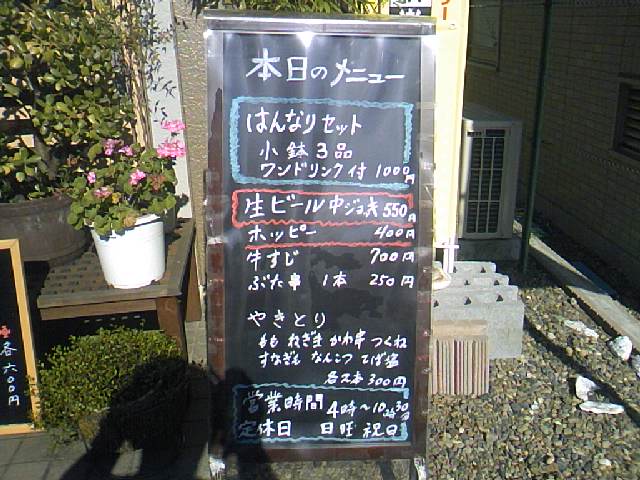 本日のメニュー
はんなりセット
小鉢3品
ワンドリンク付 1000円
生ビール中ジョッキ 550円
ホッピー 400円
牛すじ 700円
ぶた串 1本 250円
やきとり
もも ねぎま かわ串 つくね
すなぎも なんこつ てば塩
各2本 300円
営業時間 4時〜10時30分
定休日 日曜 祝日
各六００円